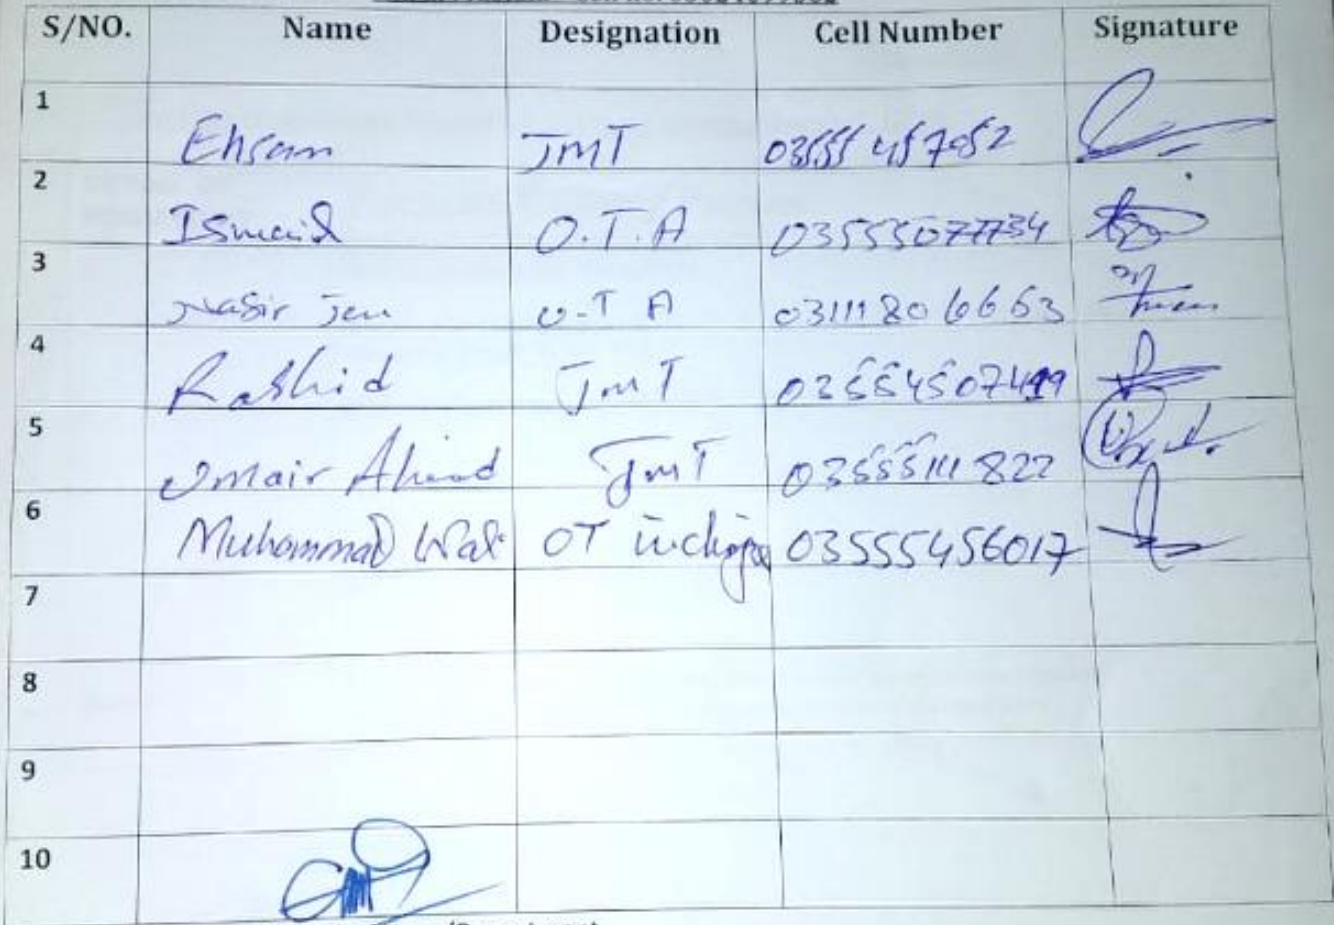 S/NO. Name Designation Cell Number Signature
1 Ehsan JMT
2 Ismail O.T.A 03555077734
3 Nasir Jan O.T A 03111806663
4 Rashid JMT
5 Umair Ahmad JMT 03555111822
6 Muhammad Wali OT incharge 03555456017
7
8
9
10